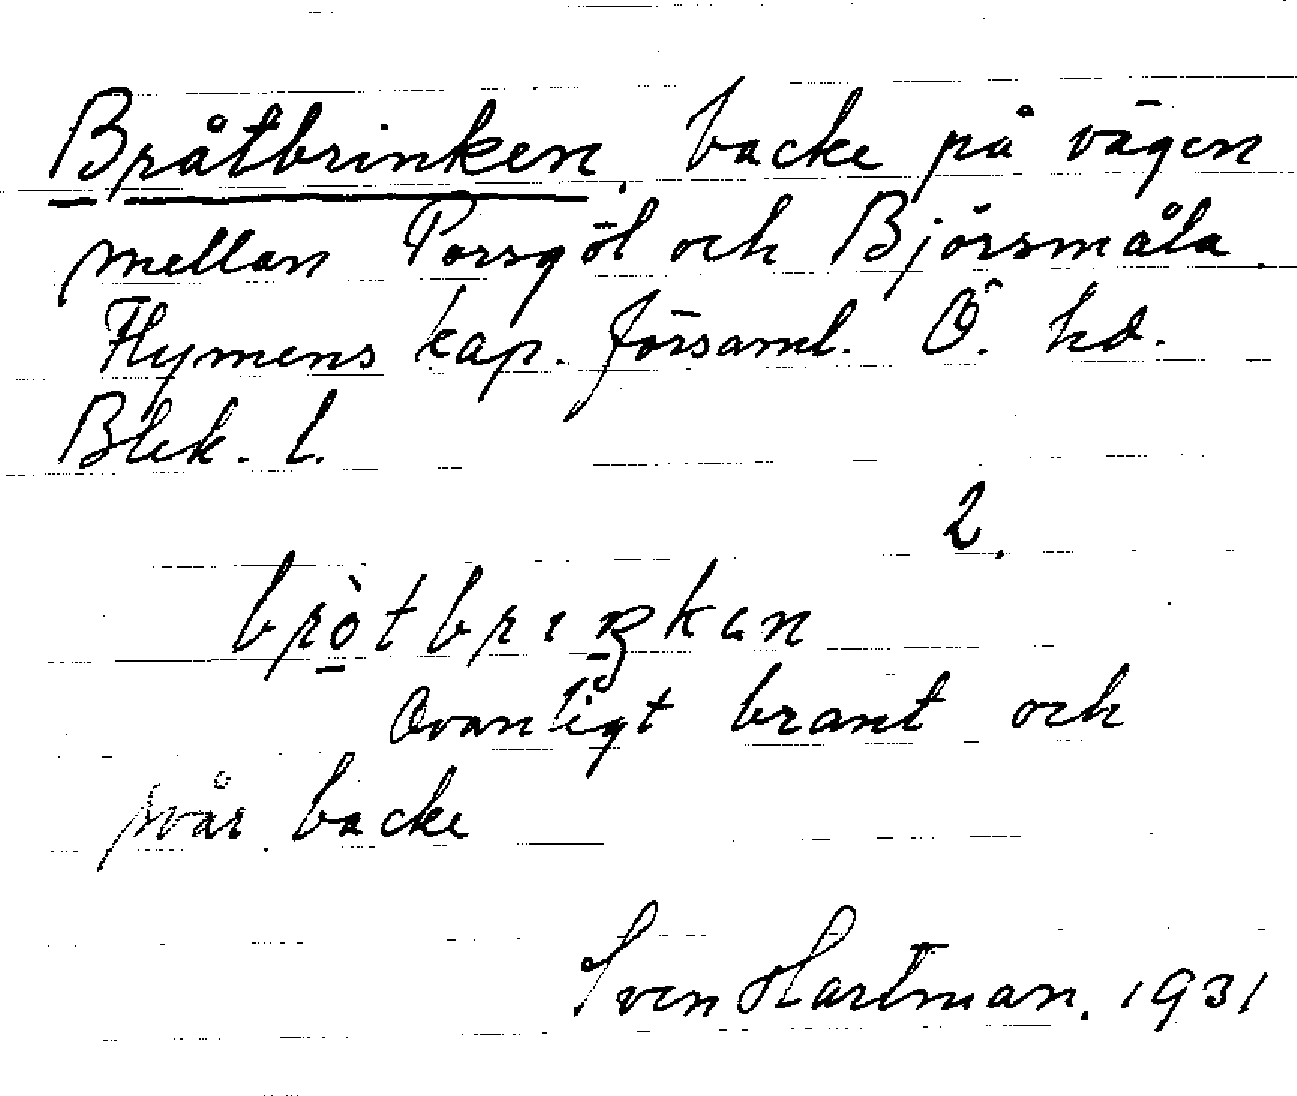 Bråtbrinken, backe på vägen
mellan Porsgöl och Björsmåla.
Flymens kap. församl. Ö. hd.
Blek. l.
2.
brò̲tbrıŋkən
Ovanligt brant och
svår backe
Sven Hartman. 1931